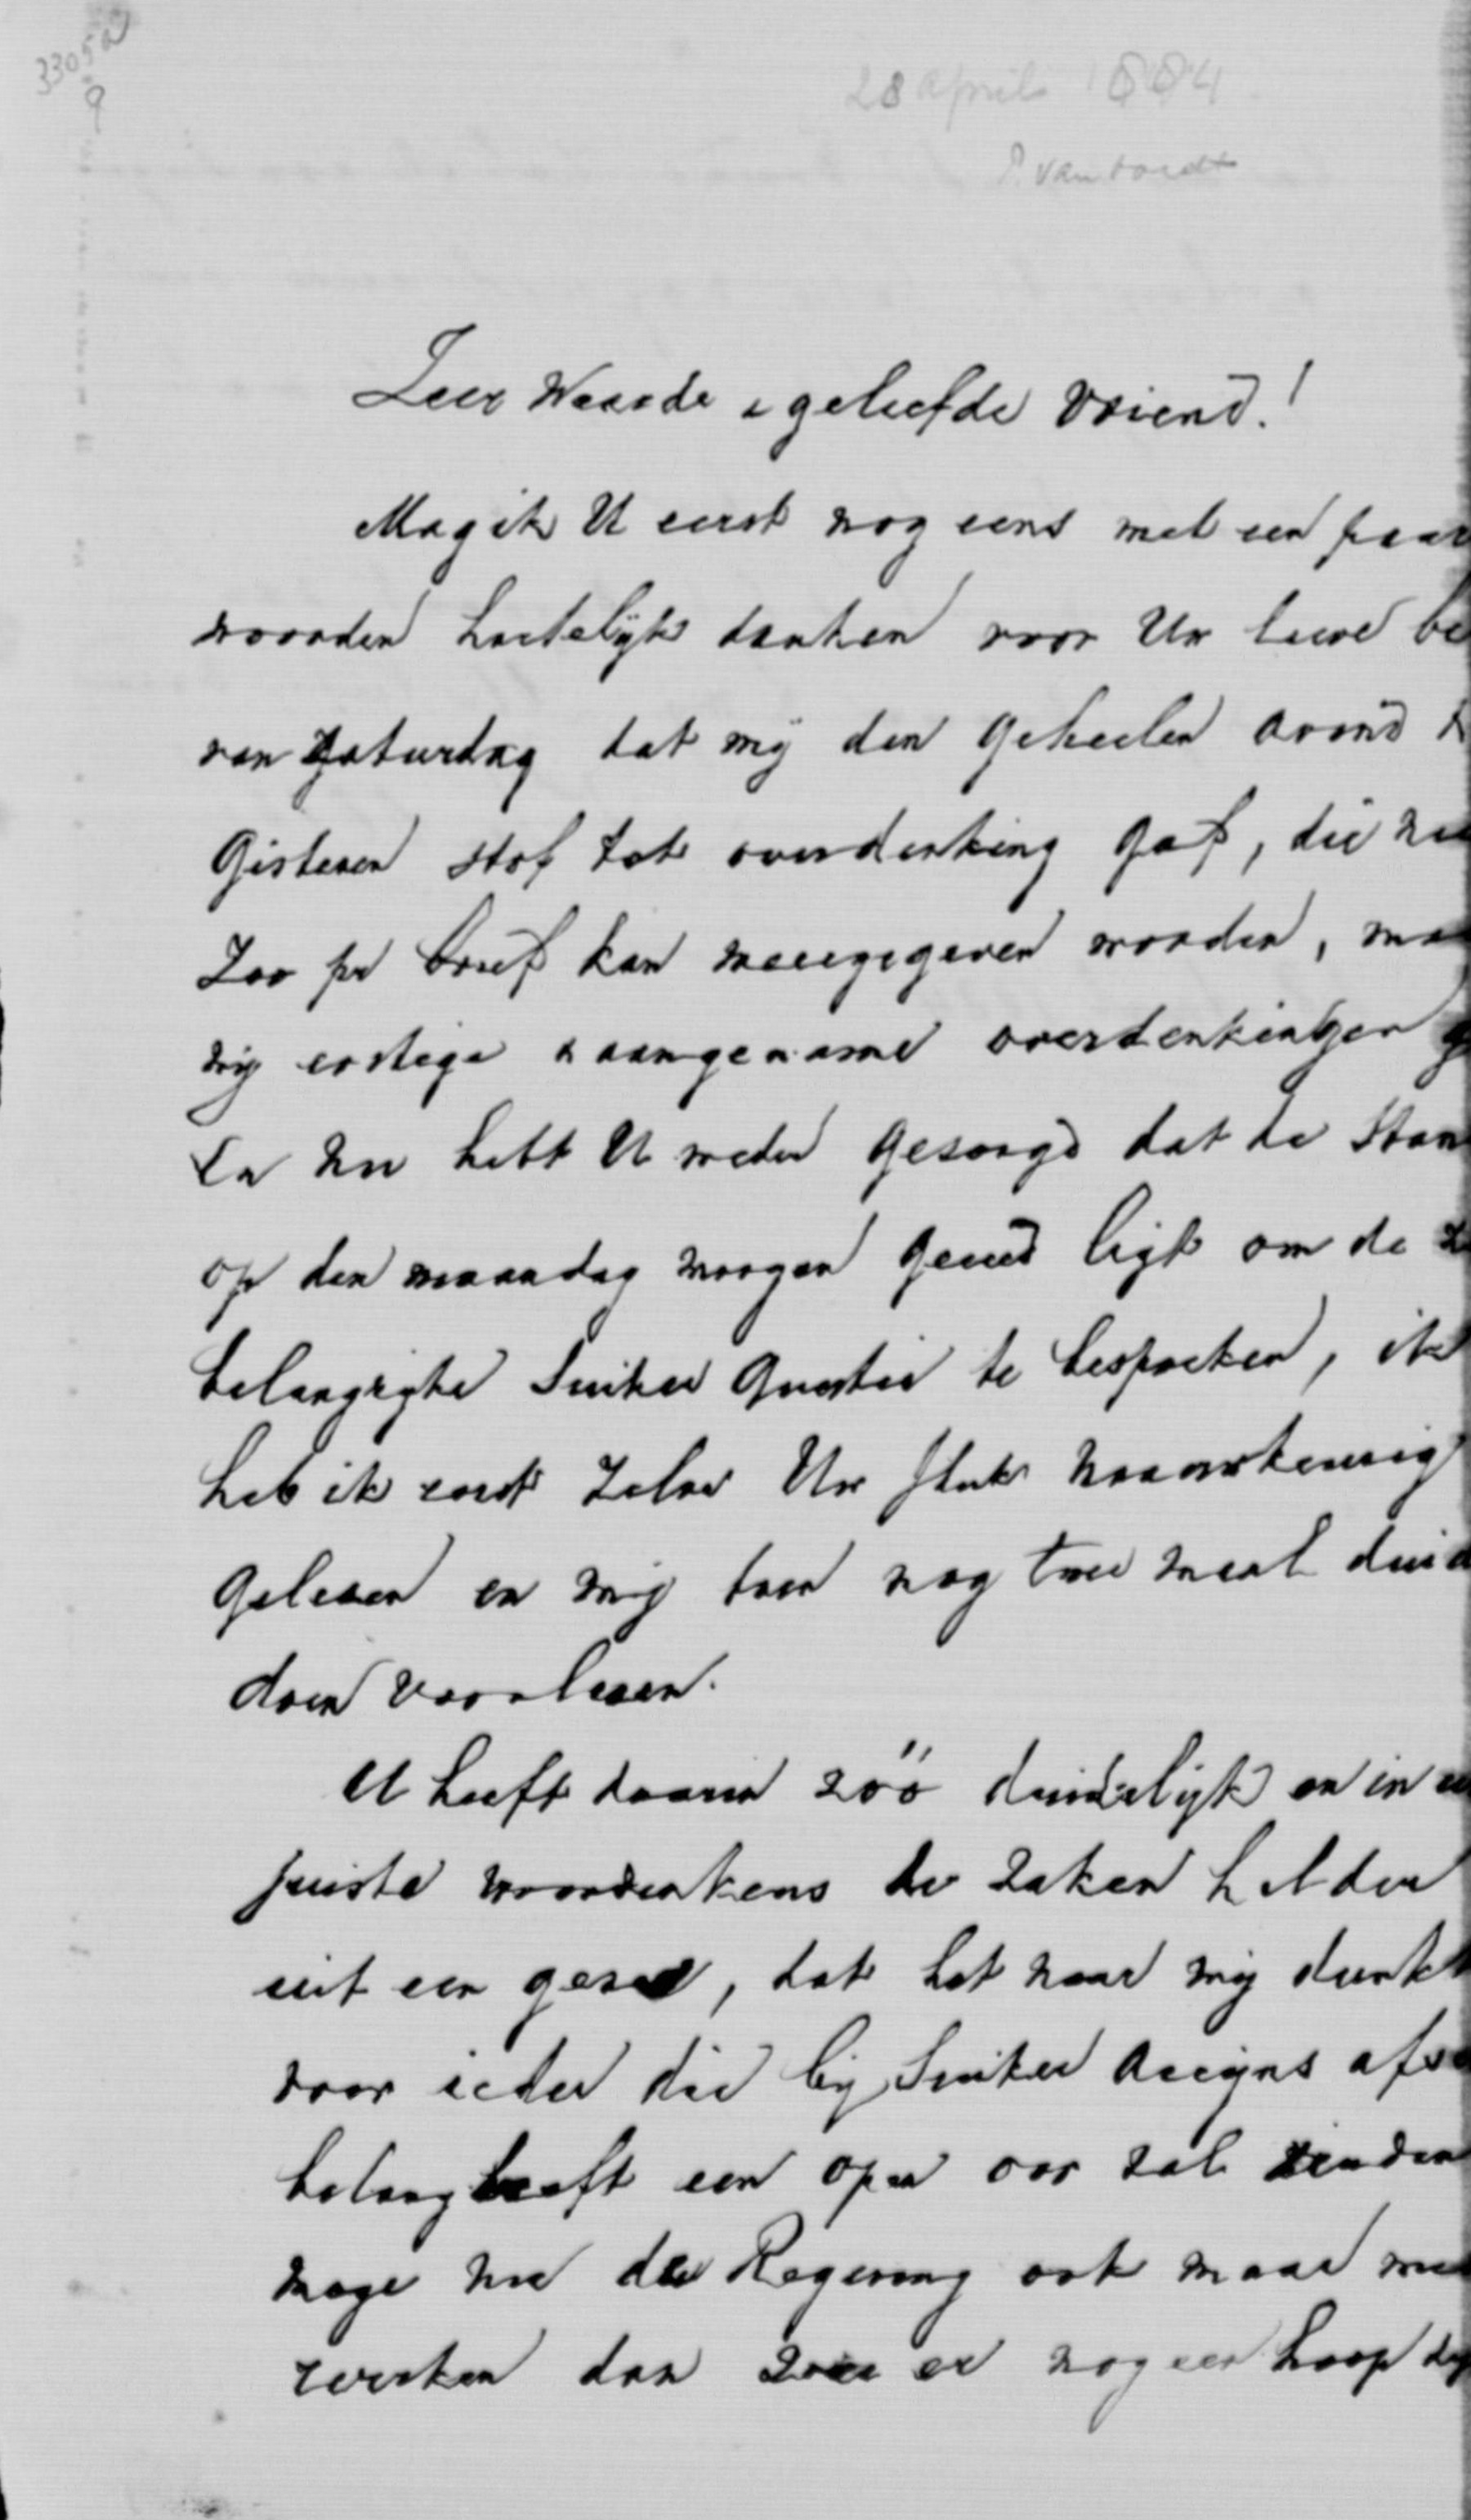 3305a
9
28 april 1884
P. van Oordt
Zeer Waarde & geliefde Vriend!
Mag ik U eerst nog eens met een paar
woorden hartelyk danken voor Uw lieve be
van Zaturdag dat mij den geheelen avond
Gisteren stof tot overdenking gaf, die
Zoo pr brief kan weergegeven worden, ma
mij ernstige & aangename overdenkingen g
En nu hebt U weder gezorgd dat de Stan
op den maandag morgen gereed ligt om de
belangrijke Suiker Questie te bespreken,
heb ik eerst Zelve Uw stuk naauwkeurig
gelezen en mij toen nog twee maal duid
doen voorlezen.
U heeft daarin zóó duidelijk en in
juiste woorden de zaken helder
uit een gezet, dat het naar mij dunkt
voor ieder die bij Suiker Accijns af
belang heeft een open oor zal vinden
moge nu de Regering ook maar me
werken dan zou er nog een hoop